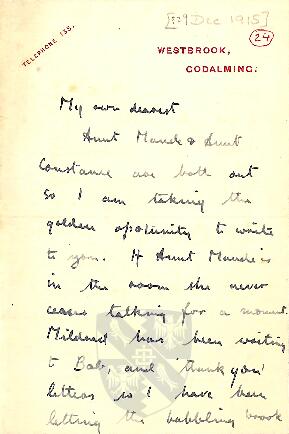 [29 Dec 1915]
24
TELEPHONE 155.
WESTBROOK,
GODALMING.
My own dearest
Aunt Maude & Aunt
Constance are both out
so I am taking the
golden opotunity to write
to you. If Aunt Maude is
in the room she never
ceases talking for a moment.
Mildred has been writing
to Bab, and 'thank you'
letters so I have been
letting the babbling brook